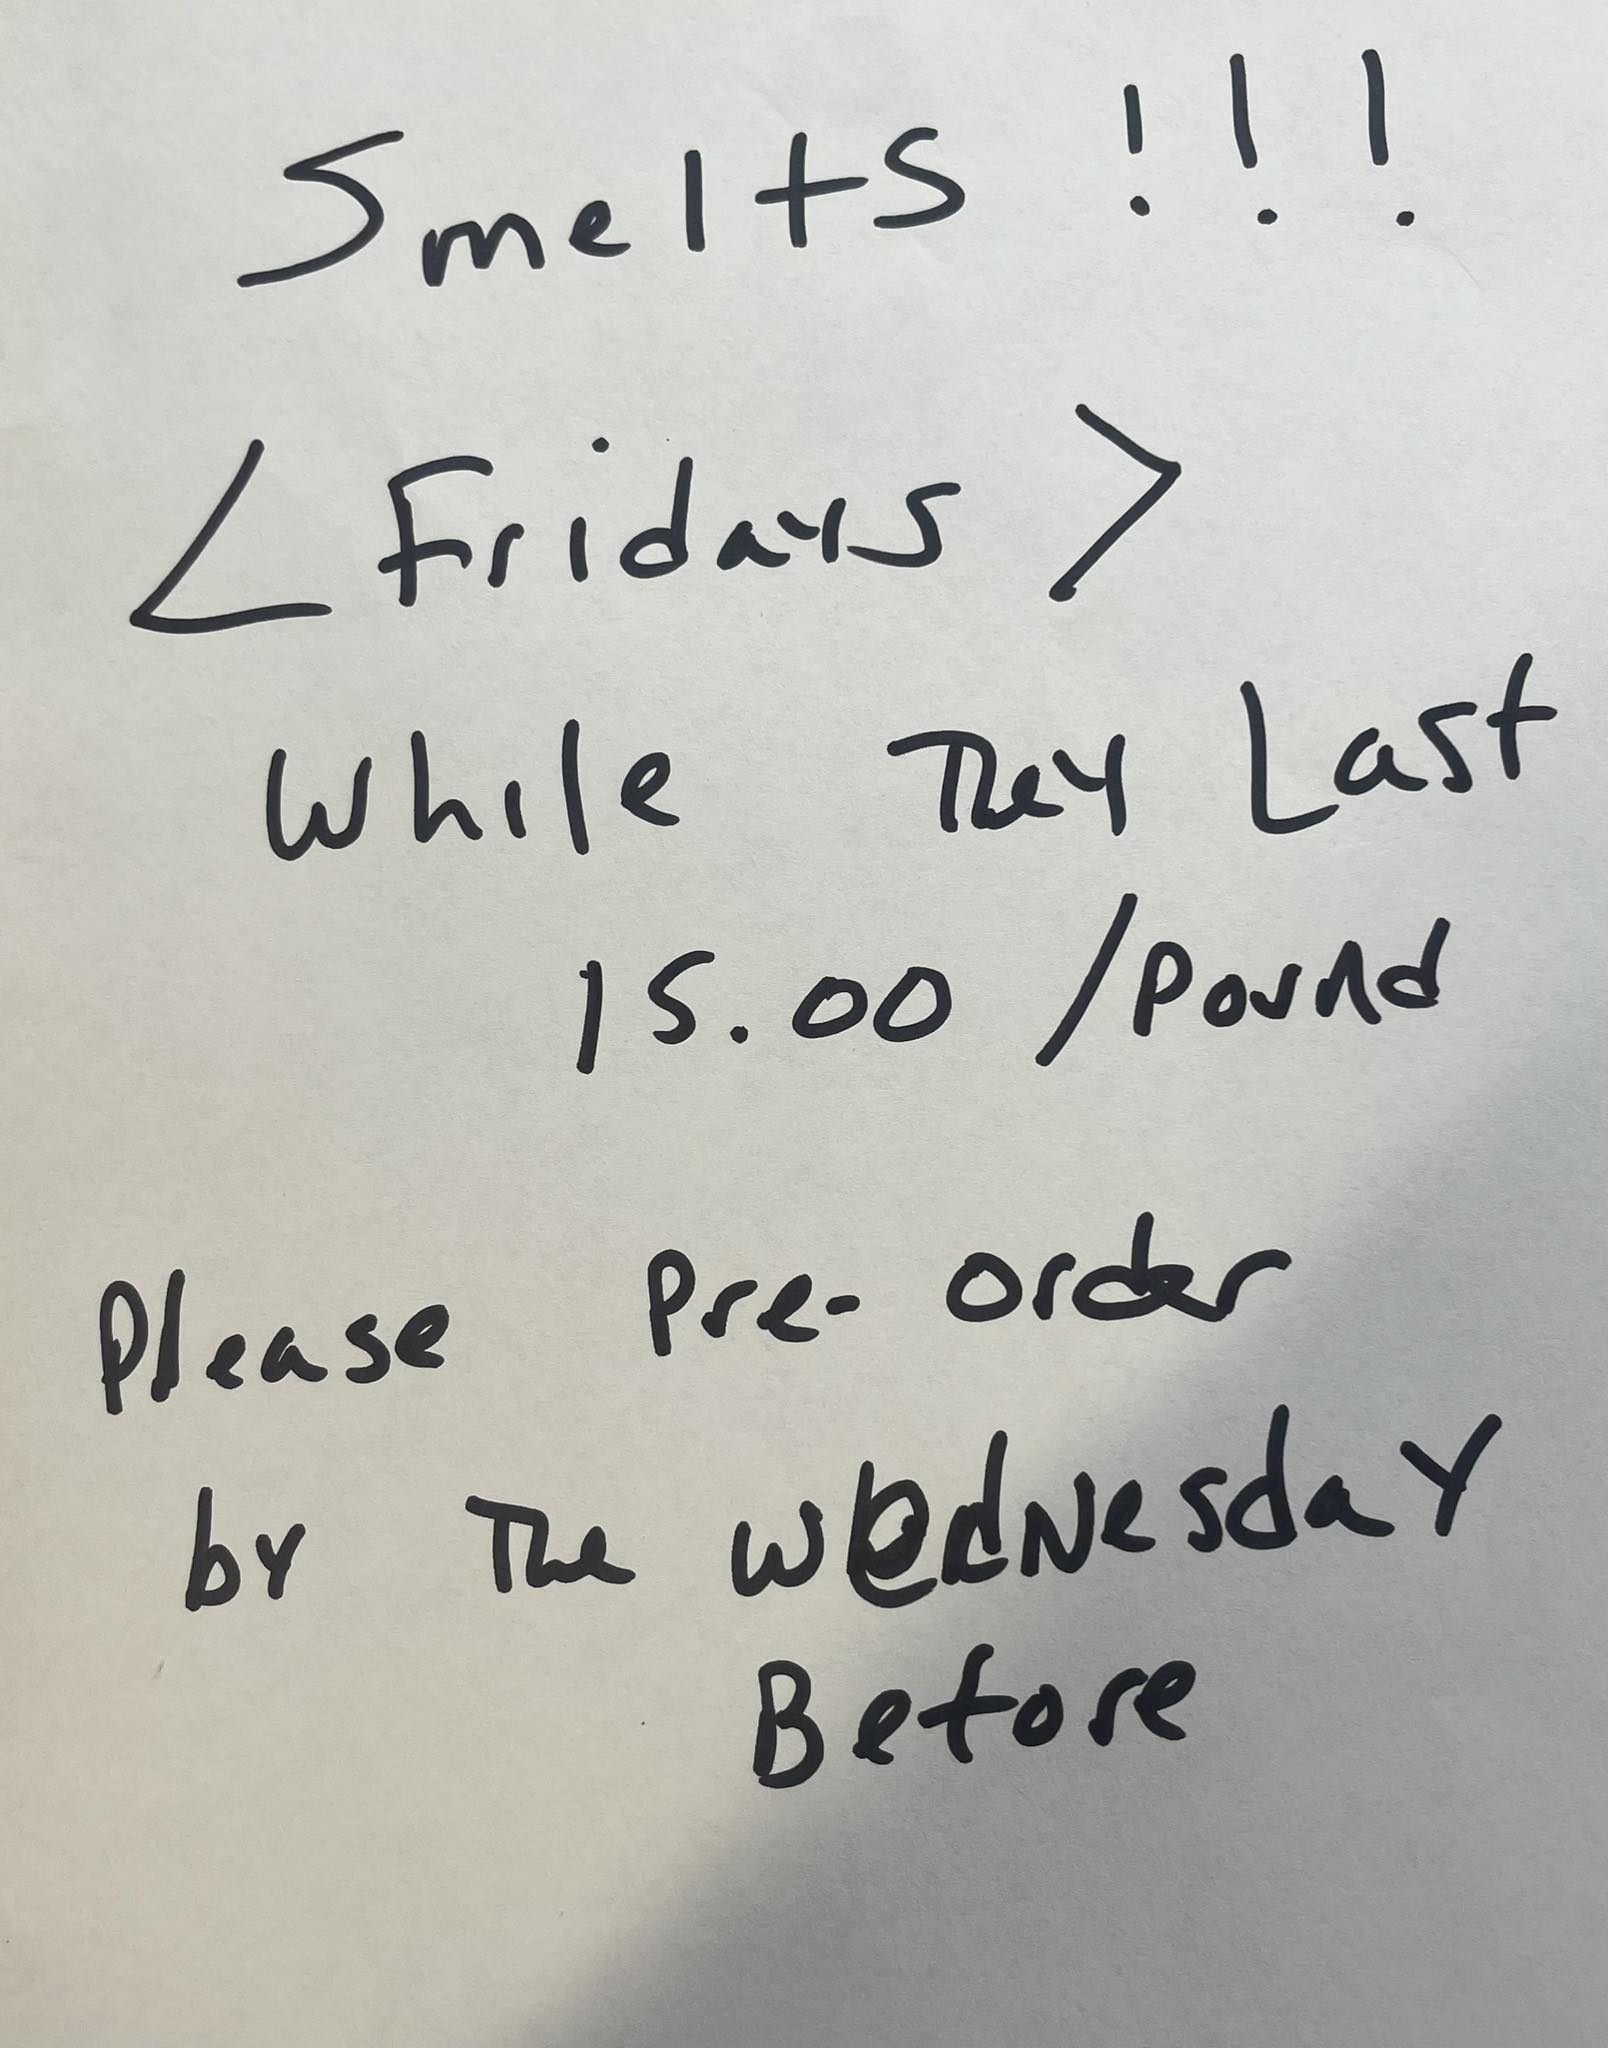 Smelts !!!
< Fridays >
While They Last
15.00 /Pound
Please Pre-order
by The Wednesday
Before